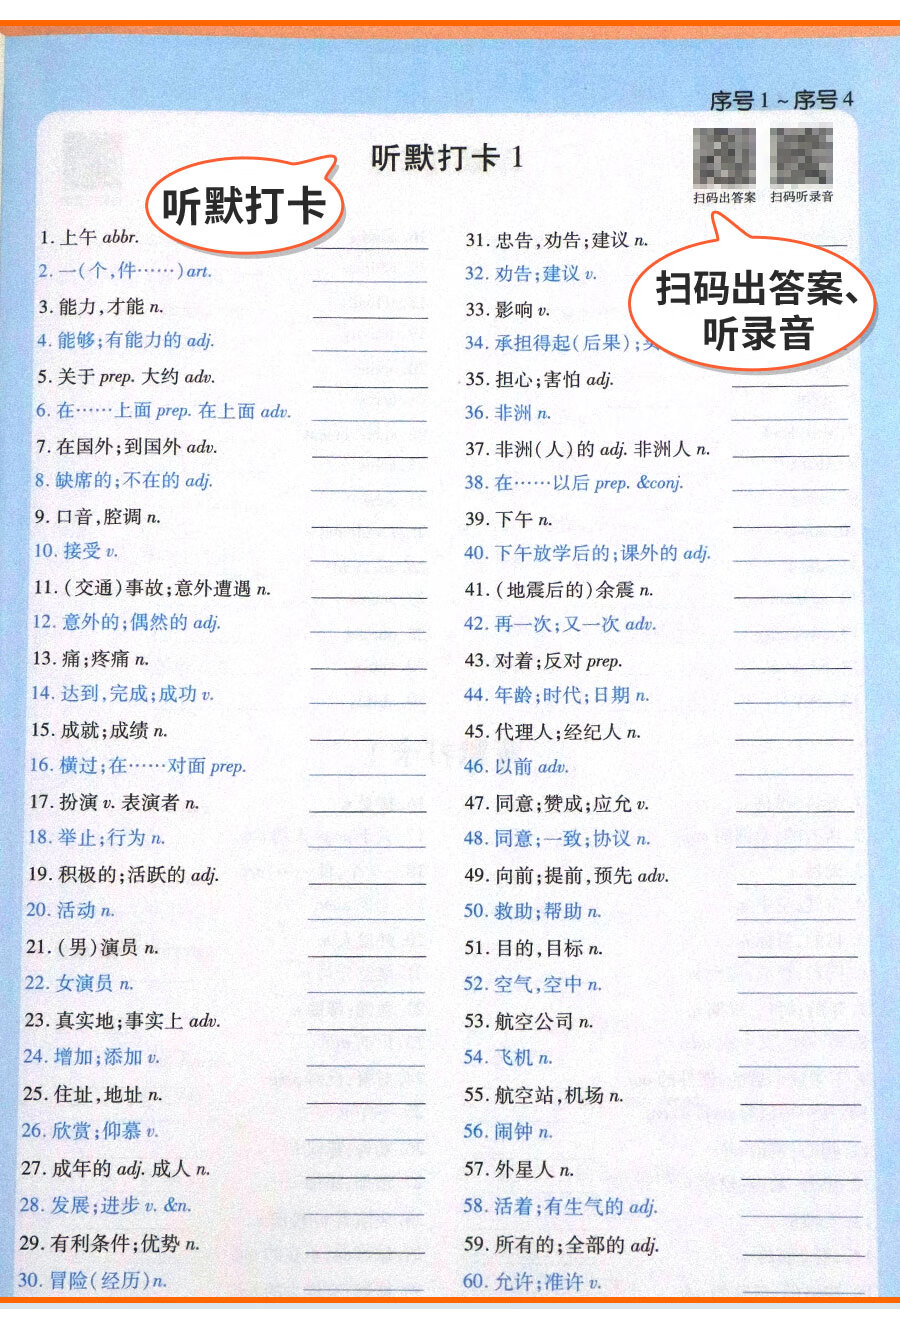 序号1~序号4
听默打卡1
扫码出答案 扫码听录音
听默打卡
扫码出答案、
听录音
1. 上午 abbr.
2. 一(个,件……)art.
3. 能力,才能 n.
4. 能够;有能力的 adj.
5. 关于 prep. 大约 adv.
6. 在……上面 prep. 在上面 adv.
7. 在国外;到国外 adv.
8. 缺席的;不在的 adj.
9. 口音,腔调 n.
10. 接受 v.
11. (交通)事故;意外遭遇 n.
12. 意外的;偶然的 adj.
13. 痛;疼痛 n.
14. 达到,完成;成功 v.
15. 成就;成绩 n.
16. 横过;在……对面 prep.
17. 扮演 v. 表演者 n.
18. 举止;行为 n.
19. 积极的;活跃的 adj.
20. 活动 n.
21. (男)演员 n.
22. 女演员 n.
23. 真实地;事实上 adv.
24. 增加;添加 v.
25. 住址,地址 n.
26. 欣赏;仰慕 v.
27. 成年的 adj. 成人 n.
28. 发展;进步 v. &n.
29. 有利条件;优势 n.
30. 冒险(经历)n.
31. 忠告,劝告;建议 n.
32. 劝告;建议 v.
33. 影响 v.
34. 承担得起(后果);
35. 担心;害怕 adj.
36. 非洲 n.
37. 非洲(人)的 adj. 非洲人 n.
38. 在……以后 prep. &conj.
39. 下午 n.
40. 下午放学后的;课外的 adj.
41. (地震后的)余震 n.
42. 再一次;又一次 adv.
43. 对着;反对 prep.
44. 年龄;时代;日期 n.
45. 代理人;经纪人 n.
46. 以前 adv.
47. 同意;赞成;应允 v.
48. 同意;一致;协议 n.
49. 向前;提前,预先 adv.
50. 救助;帮助 n.
51. 目的,目标 n.
52. 空气,空中 n.
53. 航空公司 n.
54. 飞机 n.
55. 航空站,机场 n.
56. 闹钟 n.
57. 外星人 n.
58. 活着;有生气的 adj.
59. 所有的;全部的 adj.
60. 允许;准许 v.